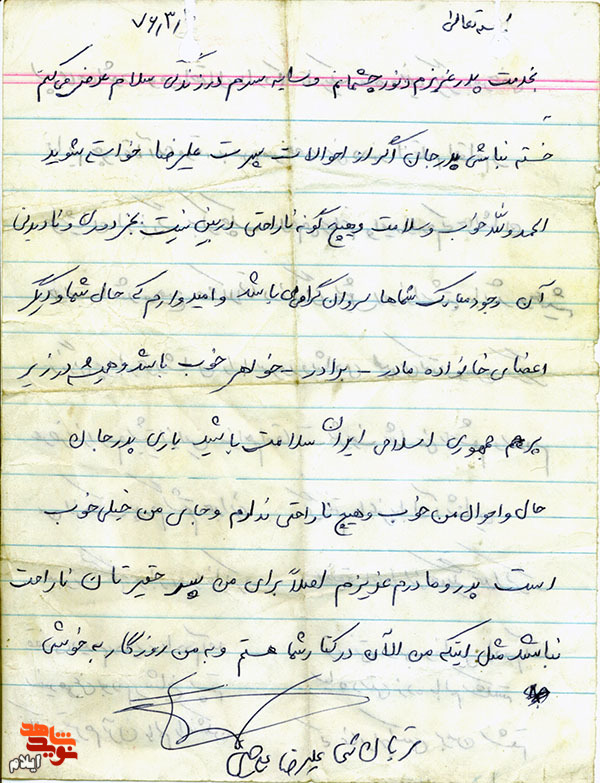 بسمه تعالی
۷۶/۳/۱
بخدمت پدر عزیزم و نور چشمانم و سایه سرم در زندگی سلام عرض می کنم
خسته نباشی پدر جان اگر از احوالات پسرت علیرضا خواسته شوید
الحمدولله خوب و سلامت و هیچ گونه ناراحتی در بین نیست بجز دوری و نادیدنی
آن وجود مبارک شماها سروان گرامی باشد و امیدوارم که حال شما و دیگر
اعضای خانواده مادر - برادر - خواهر خوب باشد و همیشه در زیر
پرچم جمهوری اسلامی ایران سلامت باشید باری پدر جان
حال و احوال من خوب و هیچ ناراحتی ندارم و جای من خیلی خوب
است پدر و مادرم عزیزم اصلاً برای من پسر حقیرتان ناراحت
نباشد مثل اینکه من الآن در کنار شما هستم و به من روزگار به خوشی
قربان شما علیرضا
نوید شاهد
ایلام